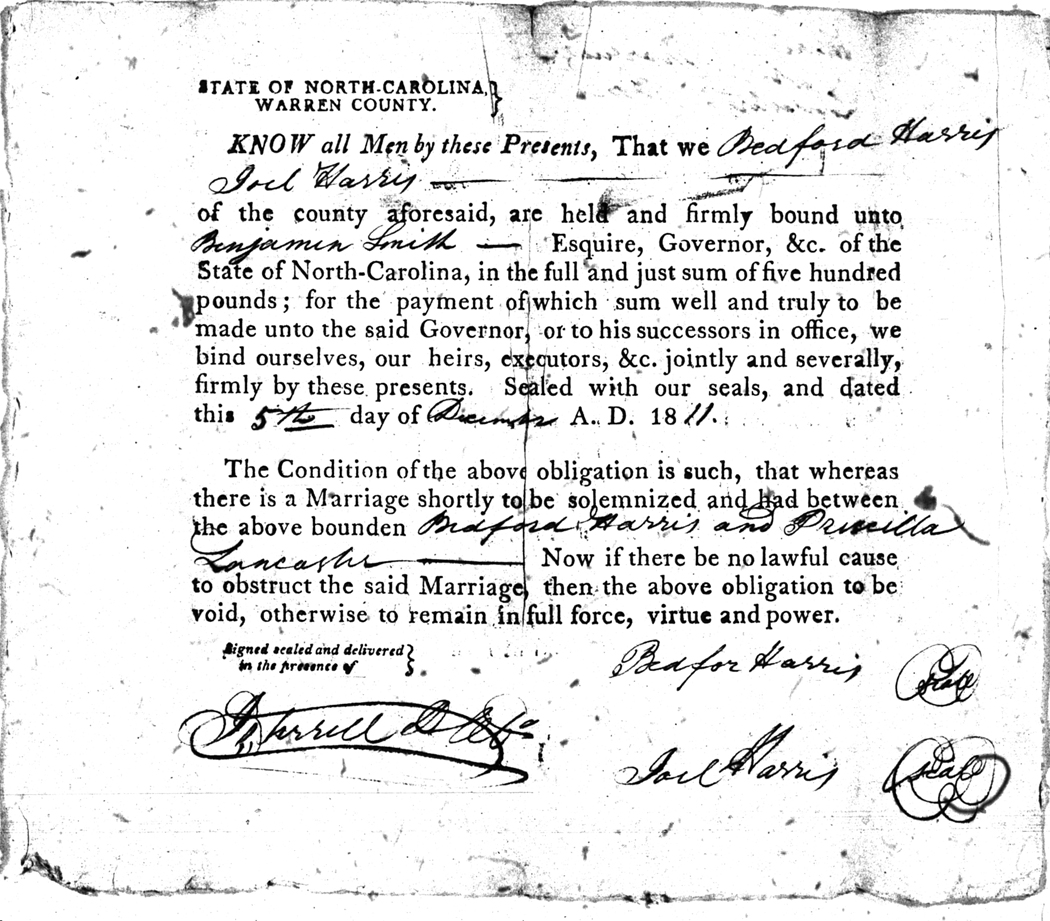 STATE OF NORTH-CAROLINA,
WARREN COUNTY.
KNOW all Men by these Presents, That we Bedford Harris
Joel Harris
of the county aforesaid, are held and firmly bound unto
Benjamin Smith — Esquire, Governor, &c. of the
State of North-Carolina, in the full and just sum of five hundred
pounds; for the payment of which sum well and truly to be
made unto the said Governor, or to his successors in office, we
bind ourselves, our heirs, executors, &c. jointly and severally,
firmly by these presents. Sealed with our seals, and dated
this 5th day of December A. D. 1811.
The Condition of the above obligation is such, that whereas
there is a Marriage shortly to be solemnized and had between
the above bounden Bedford Harris and Priscilla
Lancaster — Now if there be no lawful cause
to obstruct the said Marriage, then the above obligation to be
void, otherwise to remain in full force, virtue and power.
Signed sealed and delivered
in the presence of
Bedfor Harris seal
Joel Harris seal